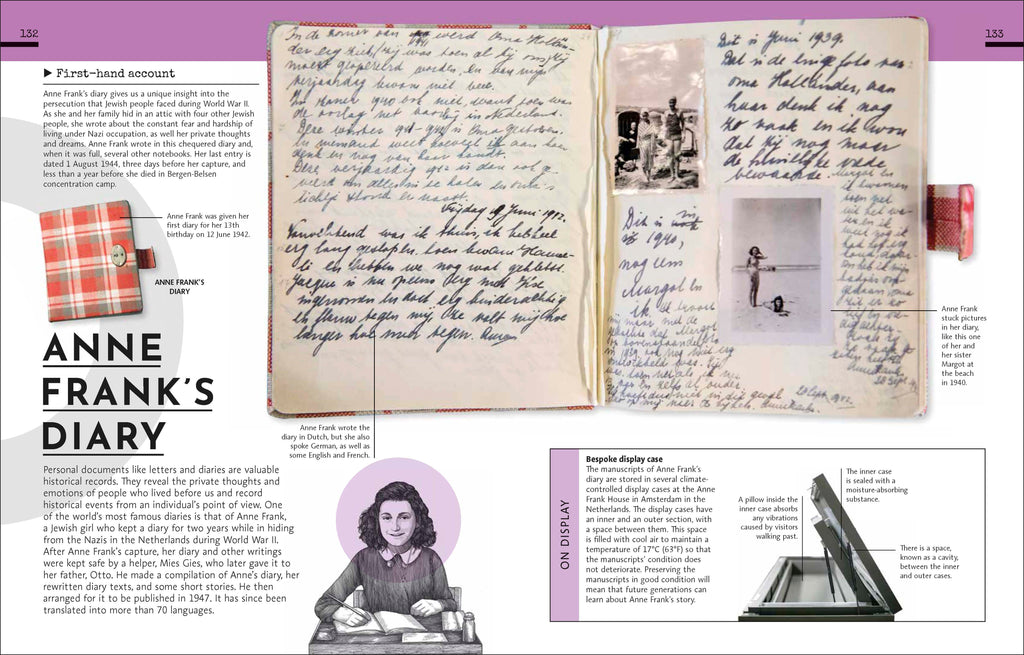 132
133
▶ First-hand account
Anne Frank's diary gives us a unique insight into the
persecution that Jewish people faced during World War II.
As she and her family hid in an attic with four other Jewish
people, she wrote about the constant fear and hardship of
living under Nazi occupation, as well her private thoughts
and dreams. Anne Frank wrote in this chequered diary and,
when it was full, several other notebooks. Her last entry is
dated 1 August 1944, three days before her capture, and
less than a year before she died in Bergen-Belsen
concentration camp.
Anne Frank was given her
first diary for her 13th
birthday on 12 June 1942.
ANNE FRANK'S
DIARY
ANNE
FRANK'S
DIARY
Personal documents like letters and diaries are valuable
historical records. They reveal the private thoughts and
emotions of people who lived before us and record
historical events from an individual's point of view. One
of the world's most famous diaries is that of Anne Frank,
a Jewish girl who kept a diary for two years while in hiding
from the Nazis in the Netherlands during World War II.
After Anne Frank's capture, her diary and other writings
were kept safe by a helper, Mies Gies, who later gave it to
her father, Otto. He made a compilation of Anne's diary, her
rewritten diary texts, and some short stories. He then
arranged for it to be published in 1947. It has since been
translated into more than 70 languages.
In de zomer van 1941 werd Oma Hollän-
der erg ziek, (zij was toen al bij ons) zij
moest geopereerd worden, en van mijn
verjaardag kwam niet veel.
In zomer 1940 ook niet, want toen was
de oorlog net voorbij in Nederland.
Deze winter 1941-1942 is Oma gestorven.
En niemand weet hoeveel ik aan haar
denk en nog van haar houdt.
Deze verjaardag 1942 is dan ook ge-
vierd om alles in te halen en oma's
lichtje stond er naast.
Vrijdag 19 Juni 1942.
Vanochtend was ik thuis, ik heb heel
erg lang geslapen, toen kwam Hanne-
li en hebben we nog wat geklets.
Jacque is nu opeens erg met Ilse
ingenomen en doet erg kinderachtig
en flauw tegen mij, Ze valt mij hoe
langer hoe meer tegen. Anne.
Dit is Juni 1939.
Dat is de enige foto van
oma Holländer, aan
haar denk ik nog
zo vaak en ik wou
dat zij nog maar
de huiselijke vrede
bewaarde. Margot en
Dit is in
1940,
nog eens
Margot en
ik.
28 Sept. 1942.
Anne Frank wrote the
diary in Dutch, but she also
spoke German, as well as
some English and French.
Anne Frank
stuck pictures
in her diary,
like this one
of her and
her sister
Margot at
the beach
in 1940.
ON DISPLAY
Bespoke display case
The manuscripts of Anne Frank's
diary are stored in several climate-
controlled display cases at the Anne
Frank House in Amsterdam in the
Netherlands. The display cases have
an inner and an outer section, with
a space between them. This space
is filled with cool air to maintain a
temperature of 17°C (63°F) so that
the manuscripts' condition does
not deteriorate. Preserving the
manuscripts in good condition will
mean that future generations can
learn about Anne Frank's story.
A pillow inside the
inner case absorbs
any vibrations
caused by visitors
walking past.
The inner case
is sealed with a
moisture-absorbing
substance.
There is a space,
known as a cavity,
between the inner
and outer cases.